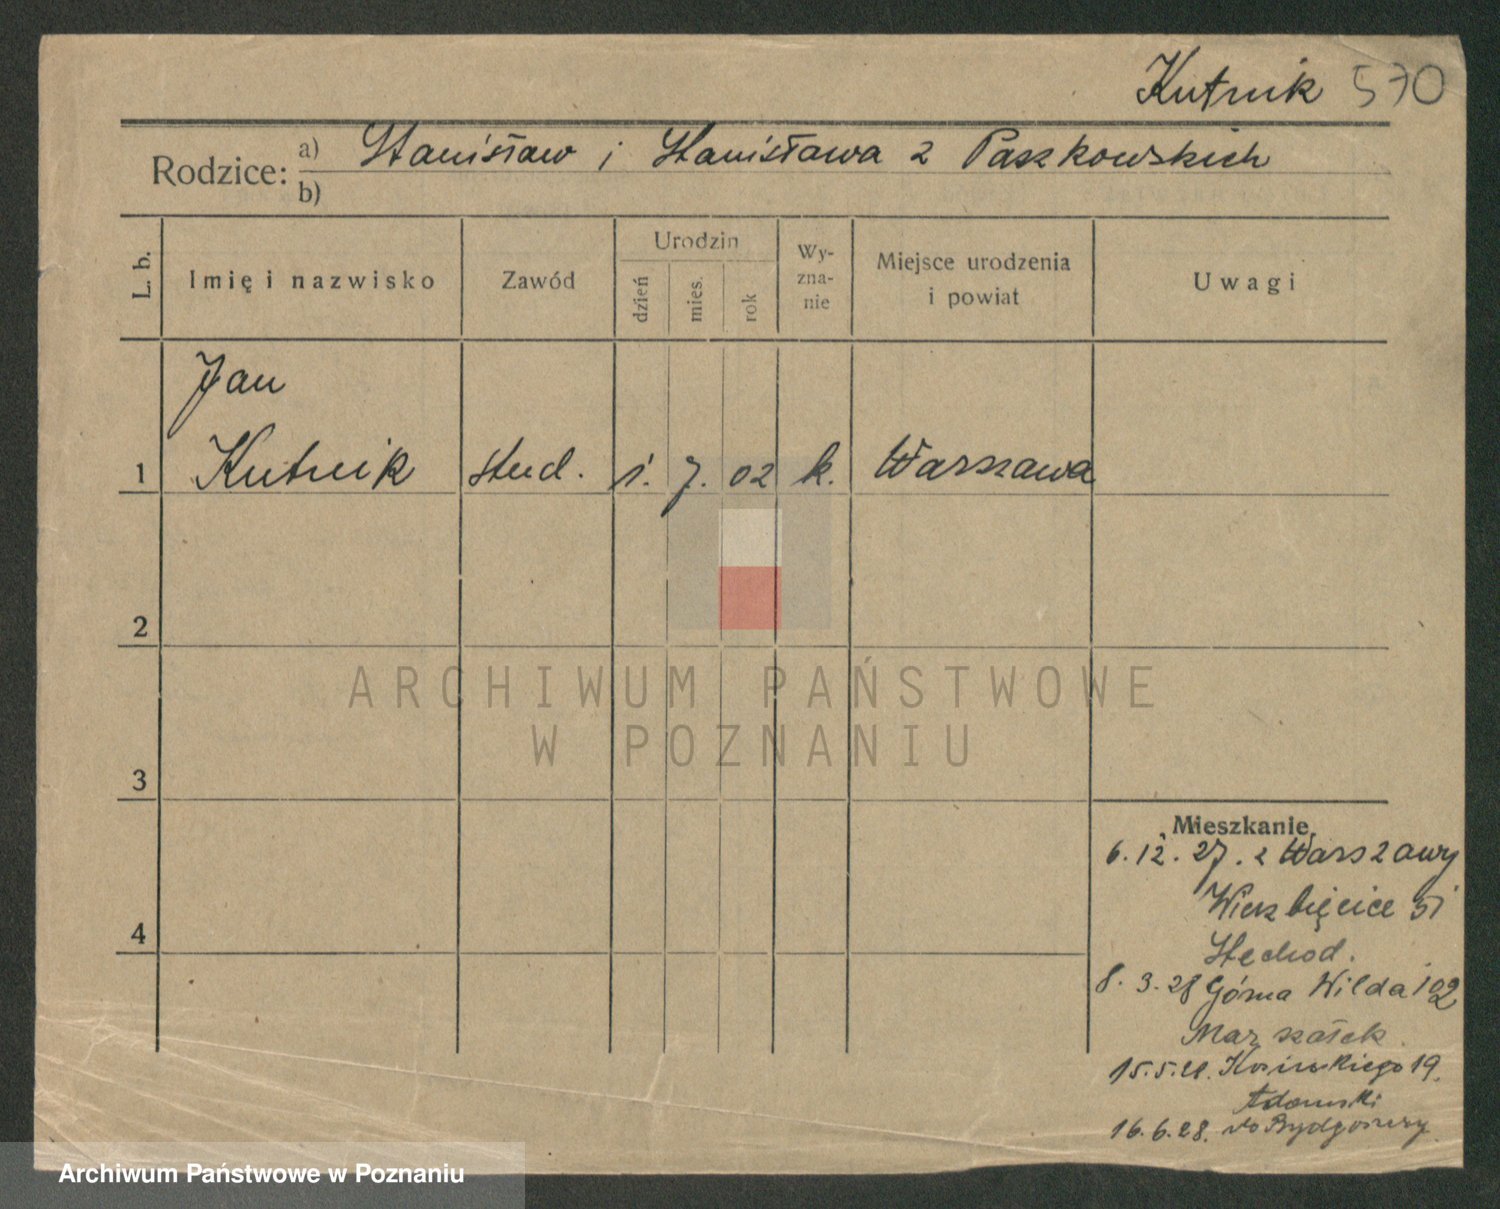 Kutnik 570
Rodzice: a) Stanisław i Stanisława z Paszkowskich
b)
L. b.
Imię i nazwisko
Zawód
Urodzin
dzień
mies.
rok
Wy-
zna-
nie
Miejsce urodzenia
i powiat
Uwagi
Jan
1 Kutnik stud. 1. 7. 02 k. Warszawa
2
ARCHIWUM PAŃSTWOWE
W POZNANIU
3
4
Mieszkanie
6. 12. 27. z Warszawy
Wierzbięcice 51
Stechod.
8. 3. 28 Górna Wilda 102
Marszałek.
15. 5. 28. Kosińskiego 19.
Adamski
16. 6. 28. do Bydgoszczy
Archiwum Państwowe w Poznaniu